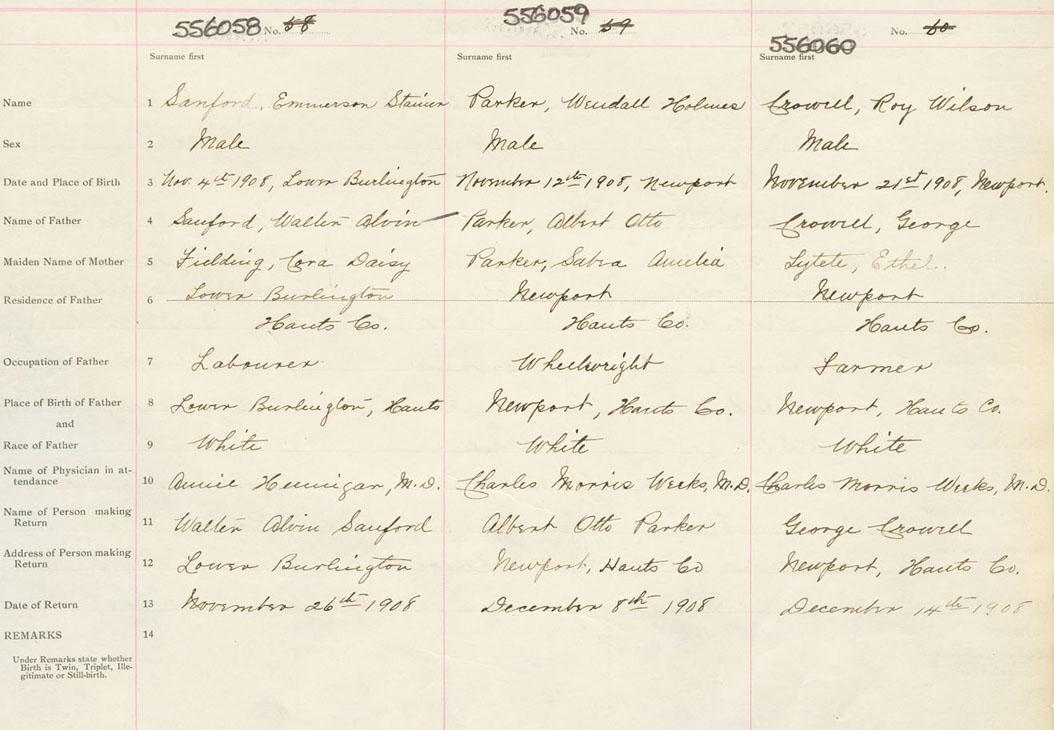 556058 No. 58 556059 No. 59 556060 No. 60
Surname first Surname first Surname first
Name 1 Sanford, Emmerson Stainer Parker, Wendall Holmes Crowell, Roy Wilson
Sex 2 Male Male Male
Date and Place of Birth 3 Nov. 4th 1908, Lower Burlington November 12th 1908, Newport November 21st 1908, Newport.
Name of Father 4 Sanford, Walter Alvin Parker, Albert Otto Crowell, George
Maiden Name of Mother 5 Fielding, Cora Daisy Parker, Sabra Amelia Ethel.
Residence of Father 6 Lower Burlington Newport Newport
Hants Co. Hants Co. Hants Co.
Occupation of Father 7 Labourer Wheelwright Farmer
Place of Birth of Father 8 Lower Burlington, Hants Newport, Hants Co. Newport, Hants Co.
and
Race of Father 9 White White White
Name of Physician in at-
tendance 10 Annie Hennigar, M.D. Charles Morris Weeks, M.D. Charles Morris Weeks, M.D.
Name of Person making
Return 11 Walter Alvin Sanford Albert Otto Parker George Crowell
Address of Person making
Return 12 Lower Burlington Newport, Hants Co Newport, Hants Co.
Date of Return 13 November 26th 1908 December 8th 1908 December 14th 1908
REMARKS 14
Under Remarks state whether
Birth is Twin, Triplet, Ille-
gitimate or Still-birth.